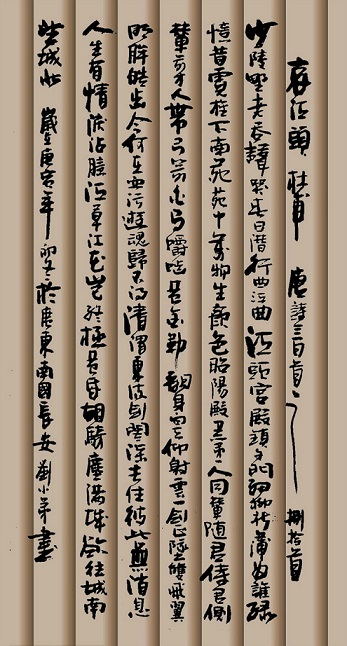 哀江頭 杜甫 唐詩三百首之 捌拾首
少陵野老吞聲哭春日潛行曲江曲江頭宮殿鎖千門細柳新蒲為誰綠
憶昔霓旌下南苑苑中萬物生顏色昭陽殿裏第一人同輦隨君侍君側
輦前才人帶弓箭白馬嚼齧黃金勒翻身向天仰射雲一箭正墜雙飛翼
明眸皓齒今何在血污遊魂歸不得清渭東流劍閣深去住彼此無消息
人生有情淚沾臆江草江花豈終極黃昏胡騎塵滿城欲往城南
望城北 歲在庚寅年 於廣東南國長安 劉小弟書